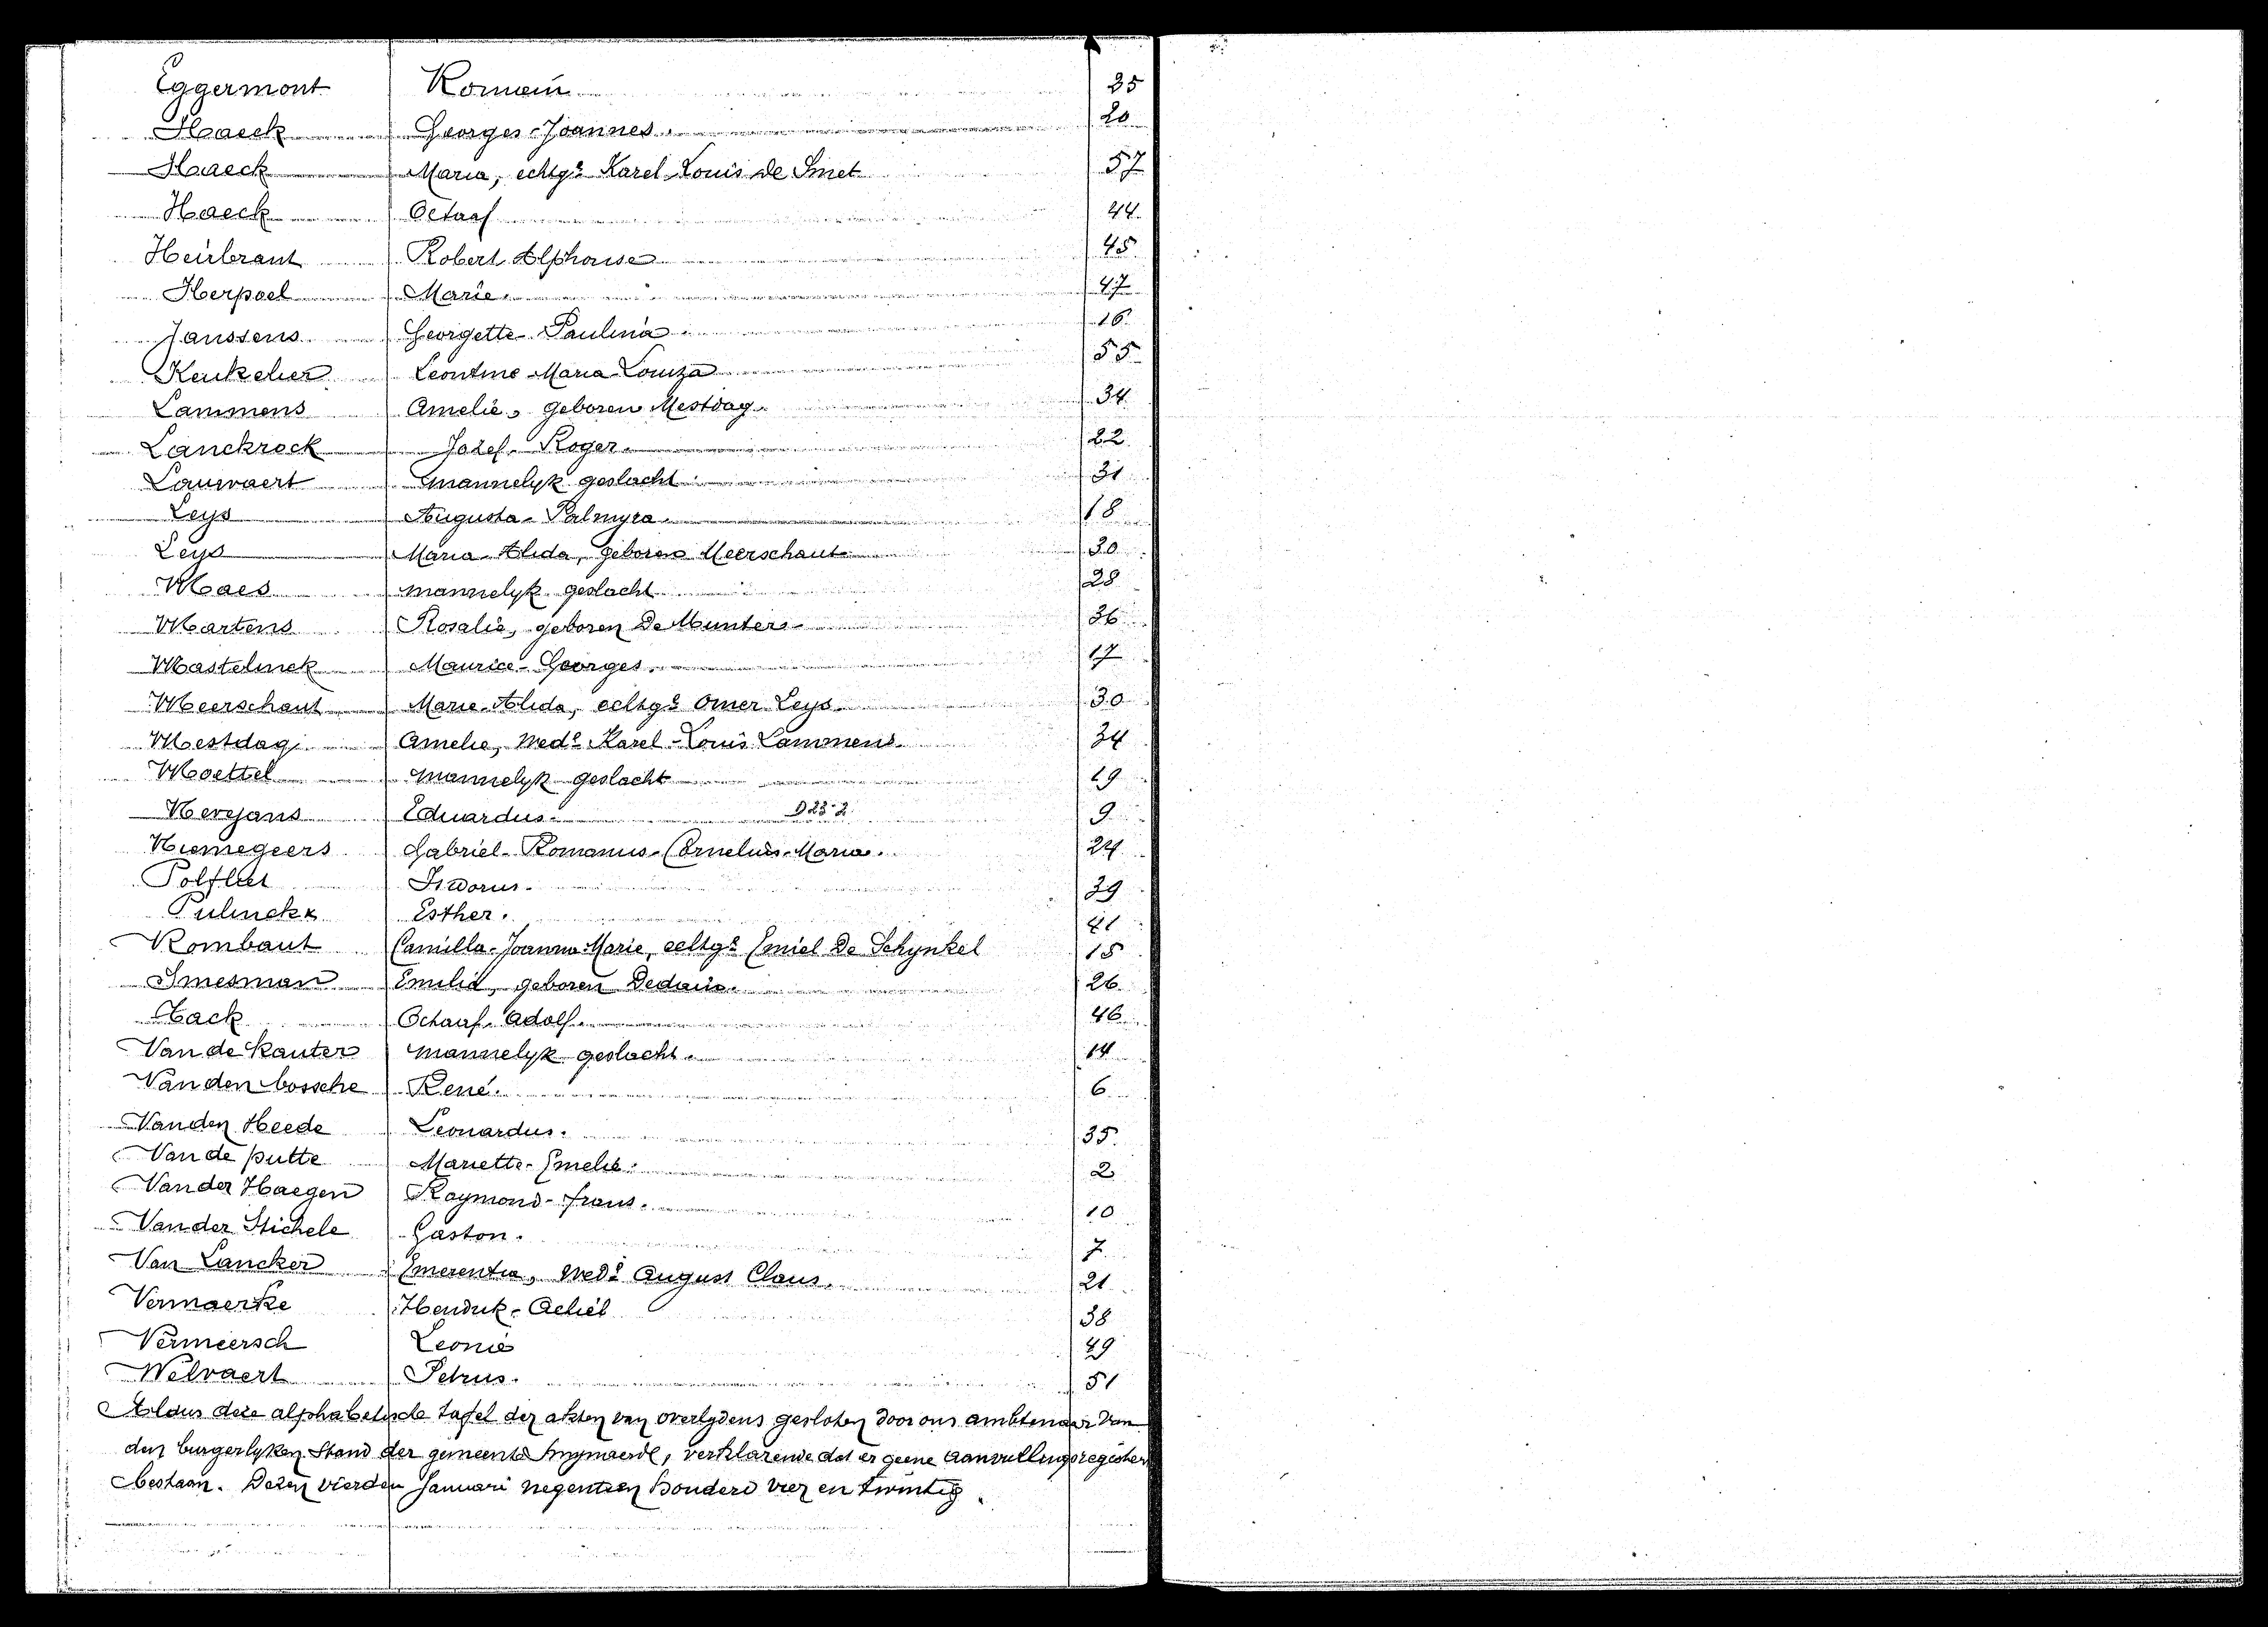 Eggermont Romain 25
Haeck Georges-Joannes. 20
Haeck Maria, echtge Karel-Louis de Smet 57
Haeck Octaaf 44
Heirbraut Robert Alphonse 45
Herpoel Marie. 47
Janssens Georgette-Paulina 16
Keukelier Leontine-Maria-Louiza 55
Lammens Amelie, geboren Mestdag. 34
Lanckrock Jozef-Roger. 22
Lauwaert mannelyk geslacht 31
Leys Augusta-Palmyra. 18
Leys Maria-Alida, geboren Meerschaut 30
Maes mannelyk geslacht 28
Martens Rosalie, geboren De Munter 36
Mastelinck Maurice-Georges. 17
Meerschaut Marie-Alida, echtge Omer Leys 30
Mestdag Amelie, Wede Karel-Louis Lammens. 34
Moettel mannelyk geslacht 19
Nevejans Eduardus. D23-2 9
Niemegeers Gabriel-Romanus-Cornelius-Maria. 24
Polfliet Isidorus. 39
Pulinckx Esther. 41
Rombaut Camilla-Joanna-Marie, echtge Emiel De Schynkel 15
Smesman Emilie, geboren 26
Hack Octaaf-Adolf. 46
Van de Kauter mannelyk geslacht. 14
Van den bossche René. 6
Van den Heede Leonardus. 35
Van de putte Mariette-Emelie. 2
Van der Haegen Raymond-frans. 10
Van der Stichele Gaston. 7
Van Lancker Emerentia, Wede August Claus. 21
Vermaerke Hendrik-Achiel 38
Vermeersch Leonie 49
Welvaert Petrus. 51
Aldus deze alphabetische tafel der akten van overlydens gesloten door ons ambtenaar van
den burgerlyken Stand der gemeente Swynaerde, verklarende dat er geene aanvullingsregisters
bestaan. Dezen vierden Januari negentien honderd vier en twintig.